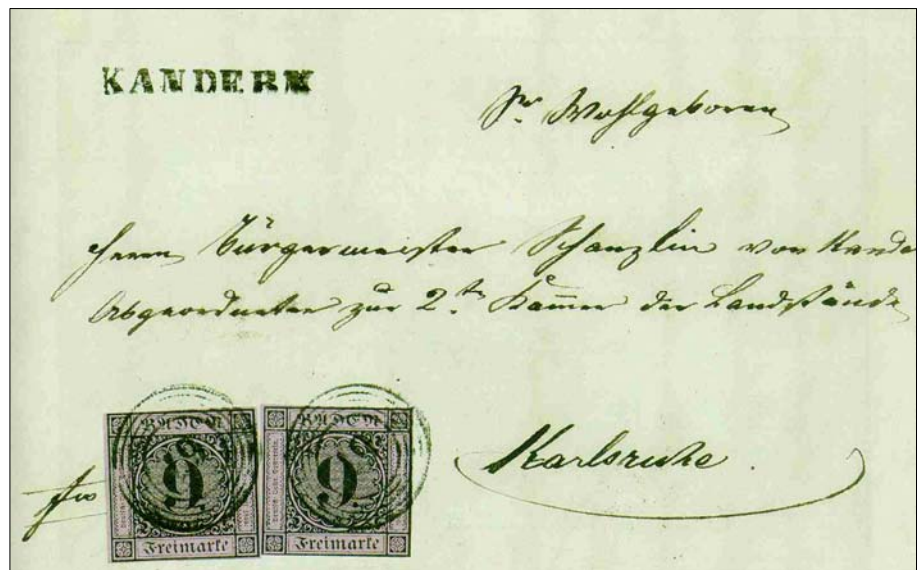 KANDERN
Sr. Wohlgeboren
Herrn Bürgermeister Schanzlin von Kande
Abgeordneter zur 2.ten Kammer der Landstände
Karlsruhe.
BADEN BADEN
9 9
Freimarke Freimarke